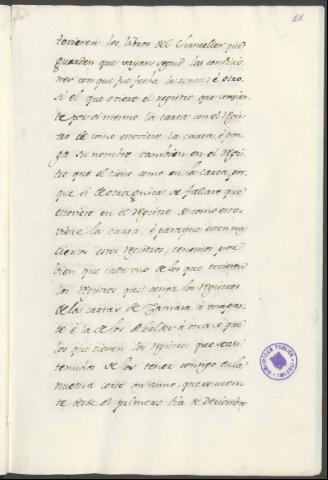 21
tovieren los libros del Chanceller que
guarden que vayan segud las condicio
nes con que fue fecha la renta: é otro
si él que oviere el registro que concier
te por si mesmo la carta con el Regis
tro de como estoviere la carta, é pon
ga su nombre tambien en el regis
tro que el tiene como en la carta, por
que si de otra guisa se fallare que
estoviere en el registro de como esto
viere la carta, é para que esten mas
ciertos estos registros, tenemos por
bien que cada uno de los que tovieren
los registros que tenga los registros
de las cartas de Camara á una par
te é la de los de  á otra, é que
los que tienen los registros que sean
tenudos de los tener contigo en la
nuestra corte un anno, que se cuen
te desde el primero dia de Deciembre
BIBLIOTECA PUBLICA
TOLEDO